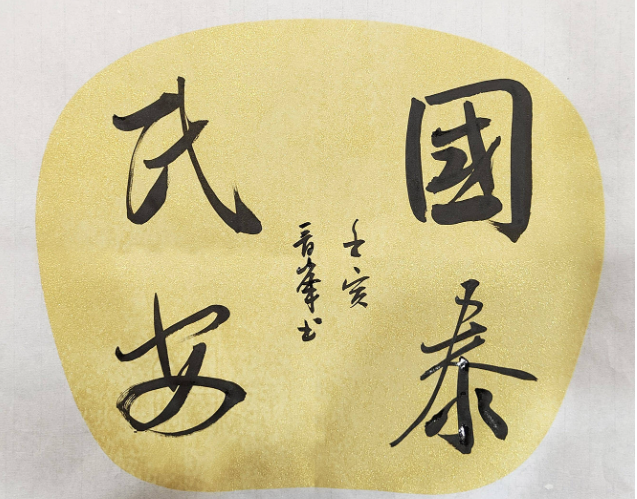 國泰
民安
壬寅
晋峰书